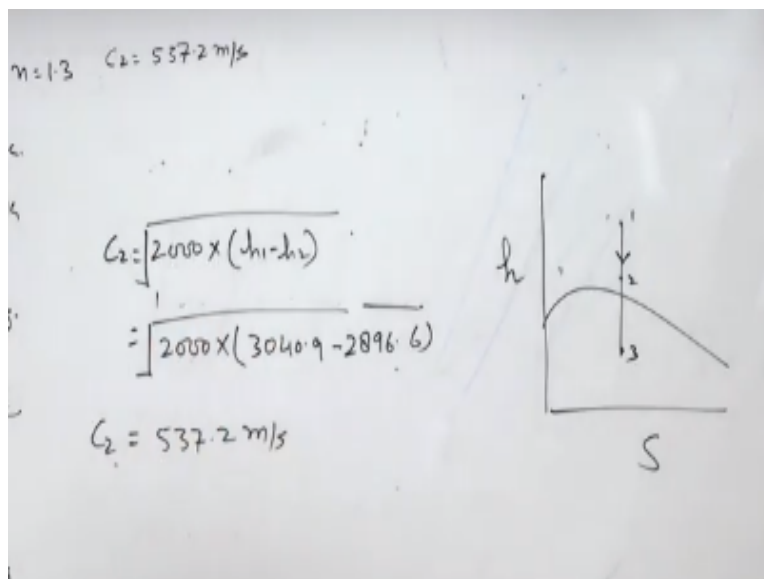 n=1.3 C2= 537.2 m/s
C2= √2000 × (h1-h2)
= √2000 × (3040.9 - 2896.6)
C2 = 537.2 m/s
h
1
2
3
S